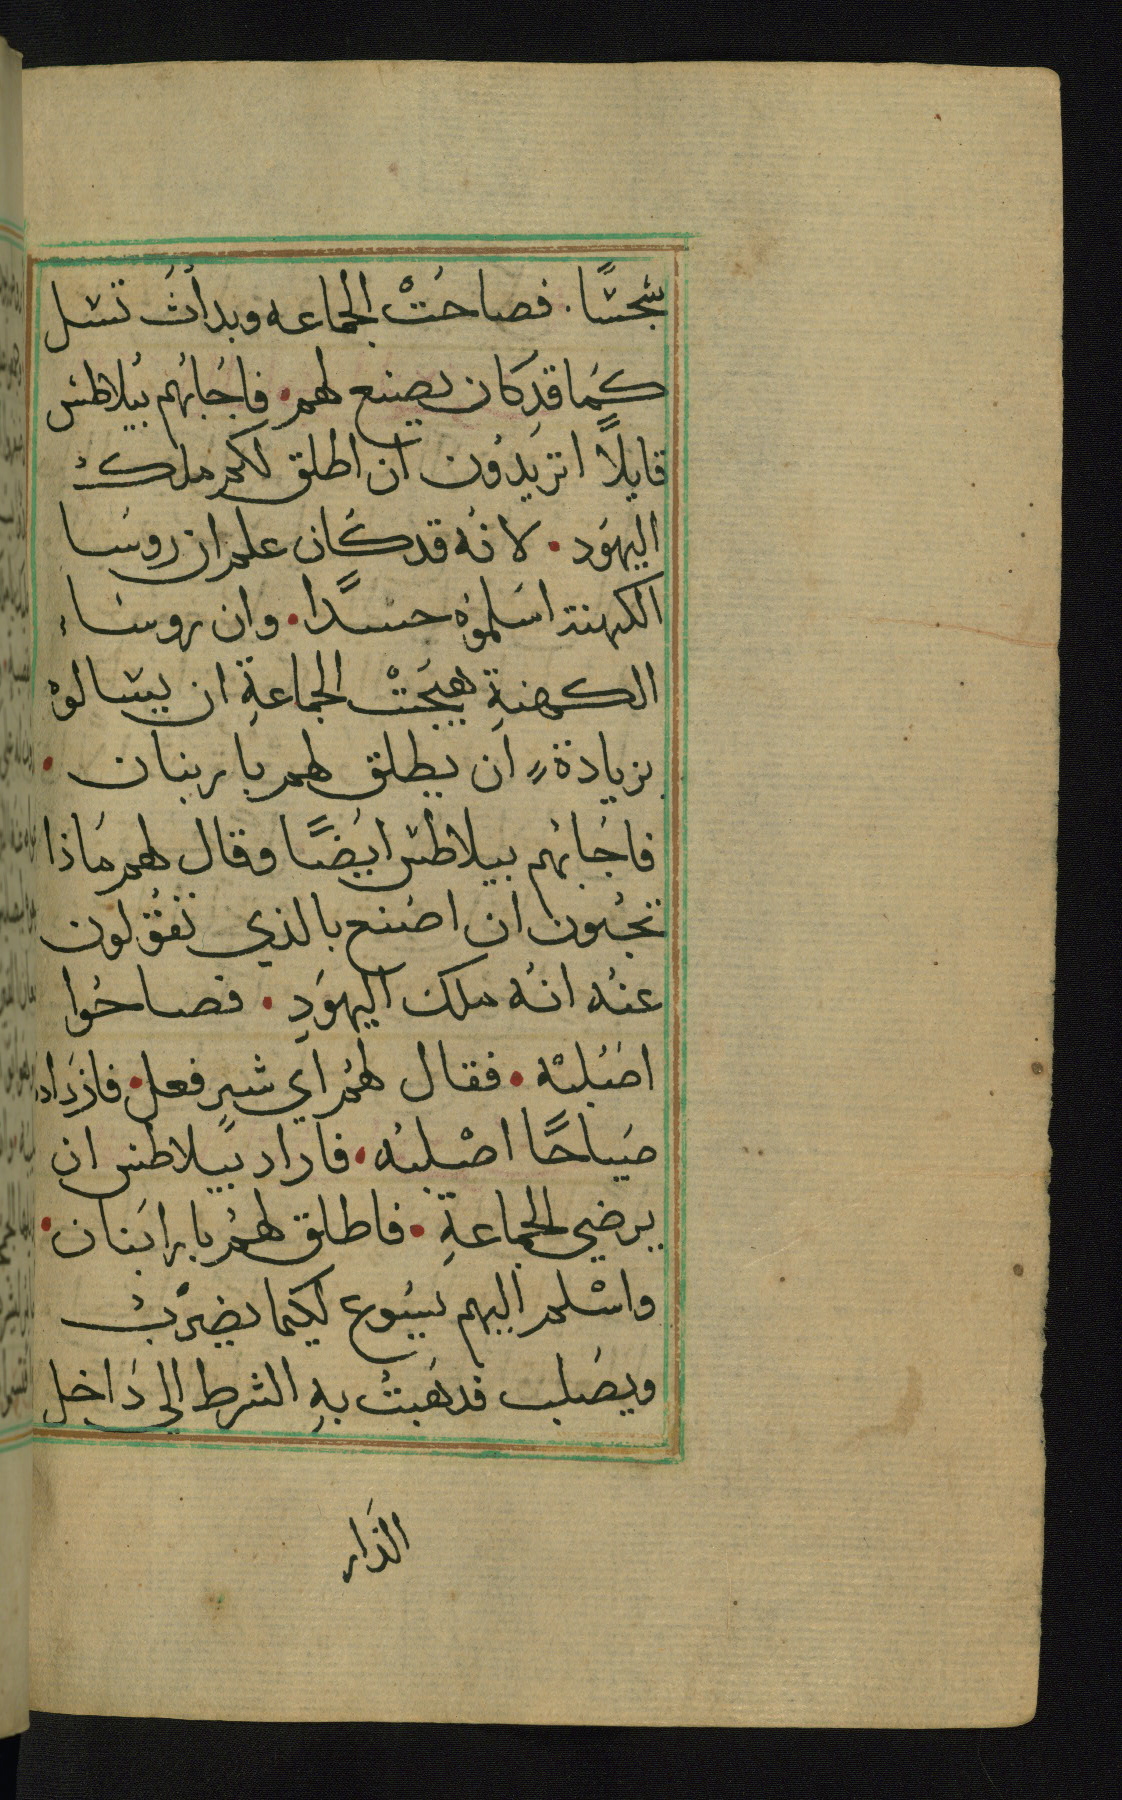 شجسًا. فصاحت الجماعه وبدأت تسل
كما قد كان يصنع لهم • فاجابهم بيلاطس
قايلاً اتريدون ان اطلق لكم ملك
اليهود • لانه قد كان علم ان روسا
الكهنة اسلموه حسدًا • وان روساء
الكهنةِ هيجتْ الجماعةِ ان يسالوه
بزيادة ان يطلق لهم باربنان •
فاجابهم بيلاطس ايضًا وقال لهم ماذا
تحبون ان اصنع بالذي تقولون
عنه انه ملك اليهودِ • فصاحوا
اصلبْه • فقال لهم اي شر فعل • فازداد
صياحًا اصْلبه • فاراد بيلاطس ان
يرضي الجماعةِ • فاطلق لهم بارابنان •
واسْلم اليهم يسوع ليكما يضرب
ويصلب فدهبت بهِ الشرط الي داخل
الدار